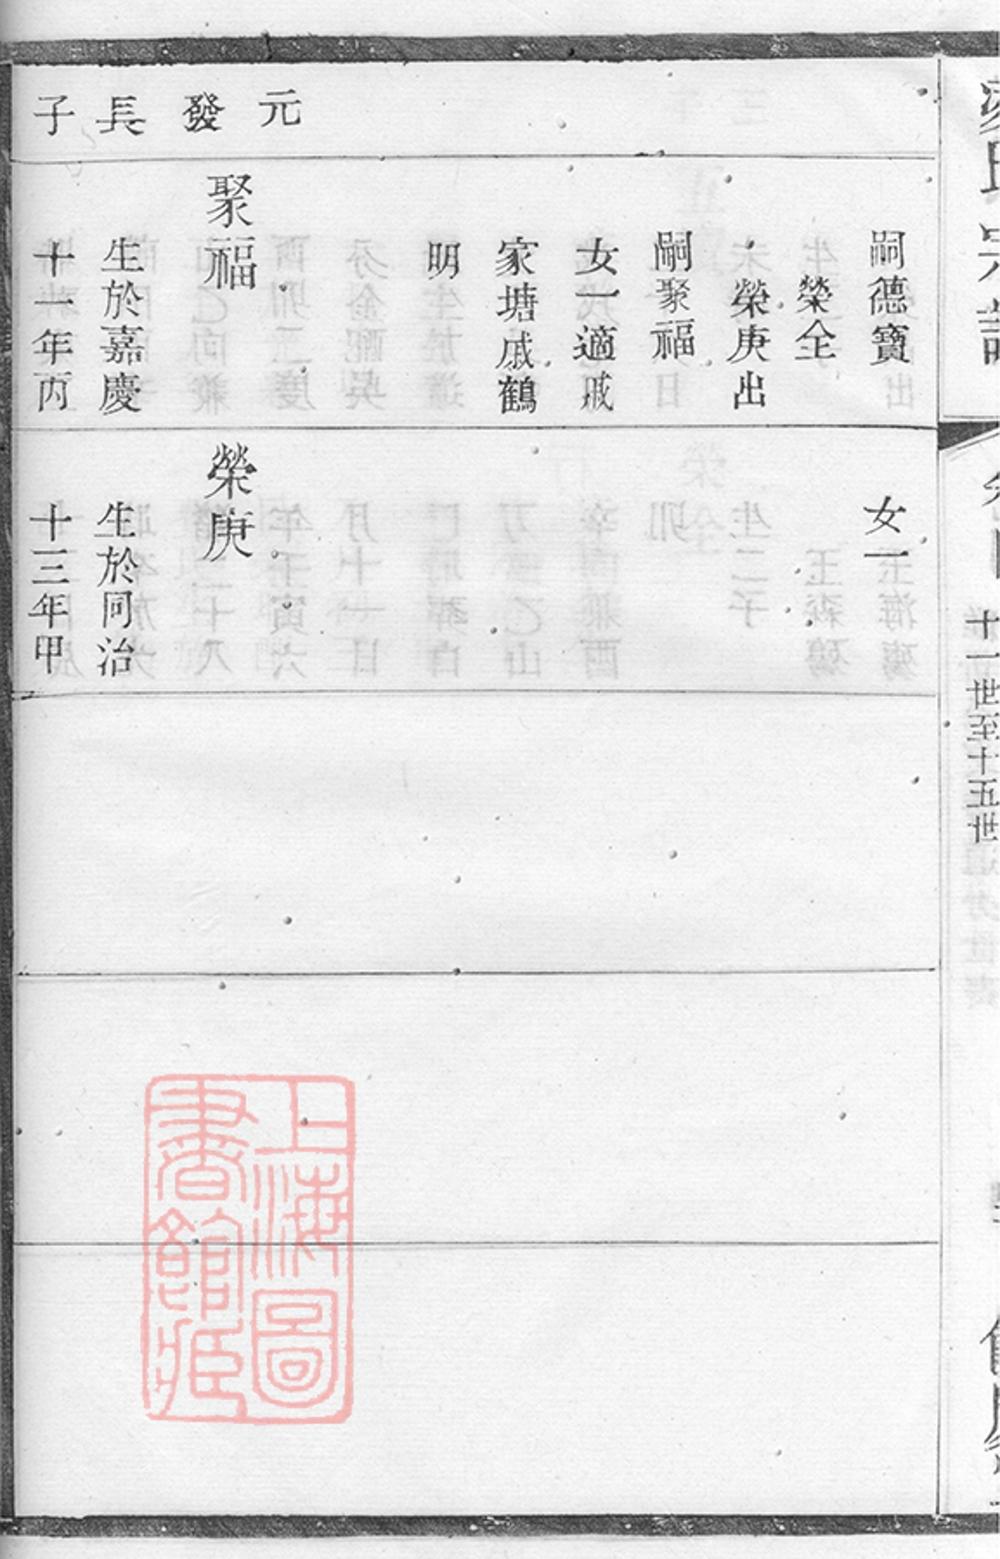 十一世至十五世
元發長子
嗣德寶
榮全
榮庚出
嗣聚福
女一適戚
家塘戚鶴
明
聚福
生於嘉慶
十一年丙
女一
榮庚
生於同治
十三年甲
上海圖
書館藏